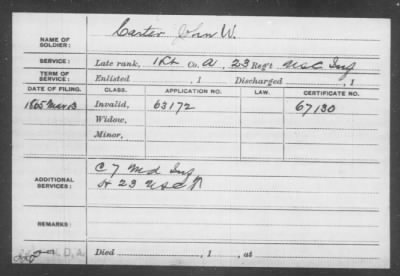 NAME OF SOLDIER: Carter John W.
SERVICE: Late rank, 1 Lt Co. A, 23 Reg't U.S.C. Inf
TERM OF SERVICE: Enlisted , 1 Discharged , 1
DATE OF FILING. CLASS. APPLICATION NO. LAW. CERTIFICATE NO.
1865 Mar 13 Invalid, 63172 67130
Widow,
Minor,
ADDITIONAL SERVICES: C 7 Md Inf
H 23 U.S.C.
REMARKS:
Died , 1 , at